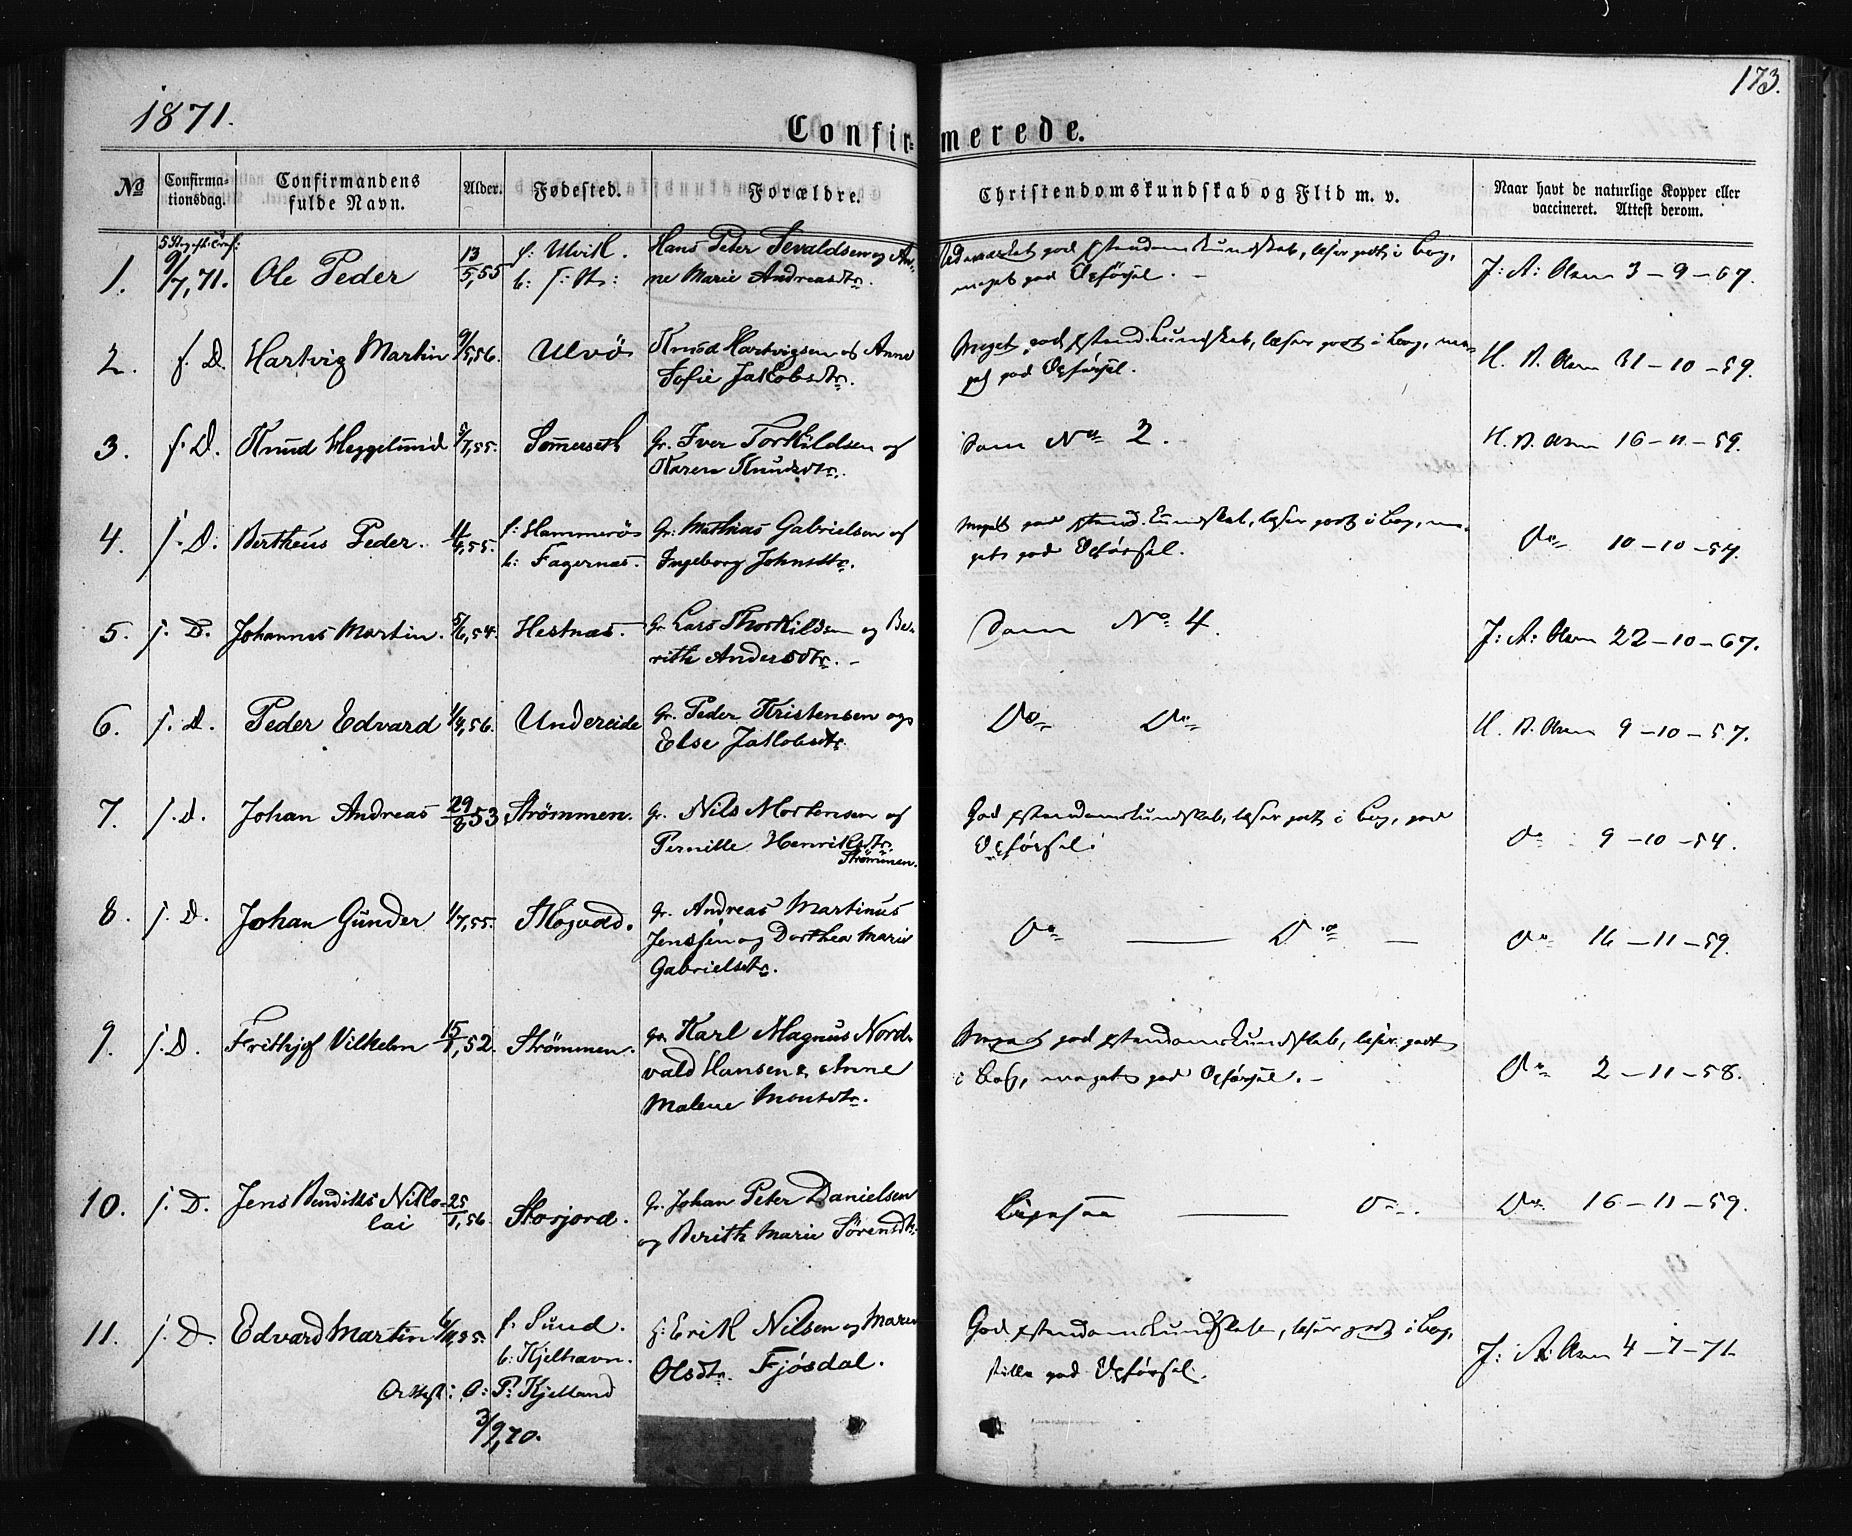 1871.
173.
Confir-
merede.
No
Confirma-
tionsdag.
Confirmandens
fulde Navn.
Alder.
Fødested.
Forældre.
Christendomskundskab og Flid m. v.
Naar havt de naturlige Kopper eller
vaccineret. Attest derom.
1. 9/7,71. Ole Peder 13/5,55 f: Ulvik. Hans Peter Sevaldsen og An-
b: ne Marie Andreasdtr.
god Kundskab, læser godt i Bog,
meget god Opførsel.
J: A: Olsen 3-9-67.
2. s. D. Hartvig Martin 9/5,56. Ulvö Knud Hartvigsen og Anne
Sofie Jakobsdtr.
Meget god Kundskab, læser godt i Bog, me-
get god Opførsel.
H. D. Olsen 31-10-59.
3. s. D. Knud Heggelund 5/7,55. Somerseth Gr. Iver Torkildsen og
Karen Knudsdtr.
Som No 2.
H. D. Olsen 16-11-59.
4. s. D. Bertheus Peder. 11/4,55. f: Hammerö Gr. Mathias Gabrielsen og
b: Fagernæs. Ingeborg Johnsdtr.
Meget god Kundskab, læser godt i Bog, me-
get god Opførsel.
Do 10-10-57.
5. s. D. Johannes Martin. 5/6,54. Hestnæs. Gr. Lars Thorkildsen og Be-
rith Andersdtr.
Som No 4.
J: A: Olsen 22-10-67.
6. s. D. Peder Edvard 1/4,56. Undereide Gr. Peder Kristensen og
Else Jakobsdtr.
Do Do
H. D. Olsen 9-10-57.
7. s. D. Johan Andreas 29/8 53 Strömmen. Gr. Nils Mortensen og
Pernille Henriksdtr.
Strömmen.
God Kundskab, læser godt i Bog, god
Opførsel.
Do 9-10-54.
8. s. D. Johan Gunder 1/7,55. Skogvold. Gr. Andreas Martinus
Jenssen og Dorthea Marie
Gabrielsdtr.
Do — Do —
Do 16-11-59.
9. s. D. Frithjof Vilhelm 15/1,52. Strömmen. Gr. Karl Magnus Nord-
vald Hansen & Anne
Malene Monsdtr.
Meget god Kundskab, læser godt
i Bog, meget god Opførsel.
Do 2-11-58.
10. s. D. Jens Bendiks Nikko- 25/1,56. Storjord. Gr. Johan Peter Danielsen
lai og Berith Marie Sörensdtr.
Ligesaa —
Do 16-11-59.
11. s. D. Edvard Martin f. Sund. Erik Nilsen og Maren
b: Kjelhavn. Olsdtr. Fjösdal.
God Kundskab, læser godt i Bog,
stille god Opførsel.
J: A: Olsen 4-7-71.
Attest: O: P: Kjelland
3/9,70.